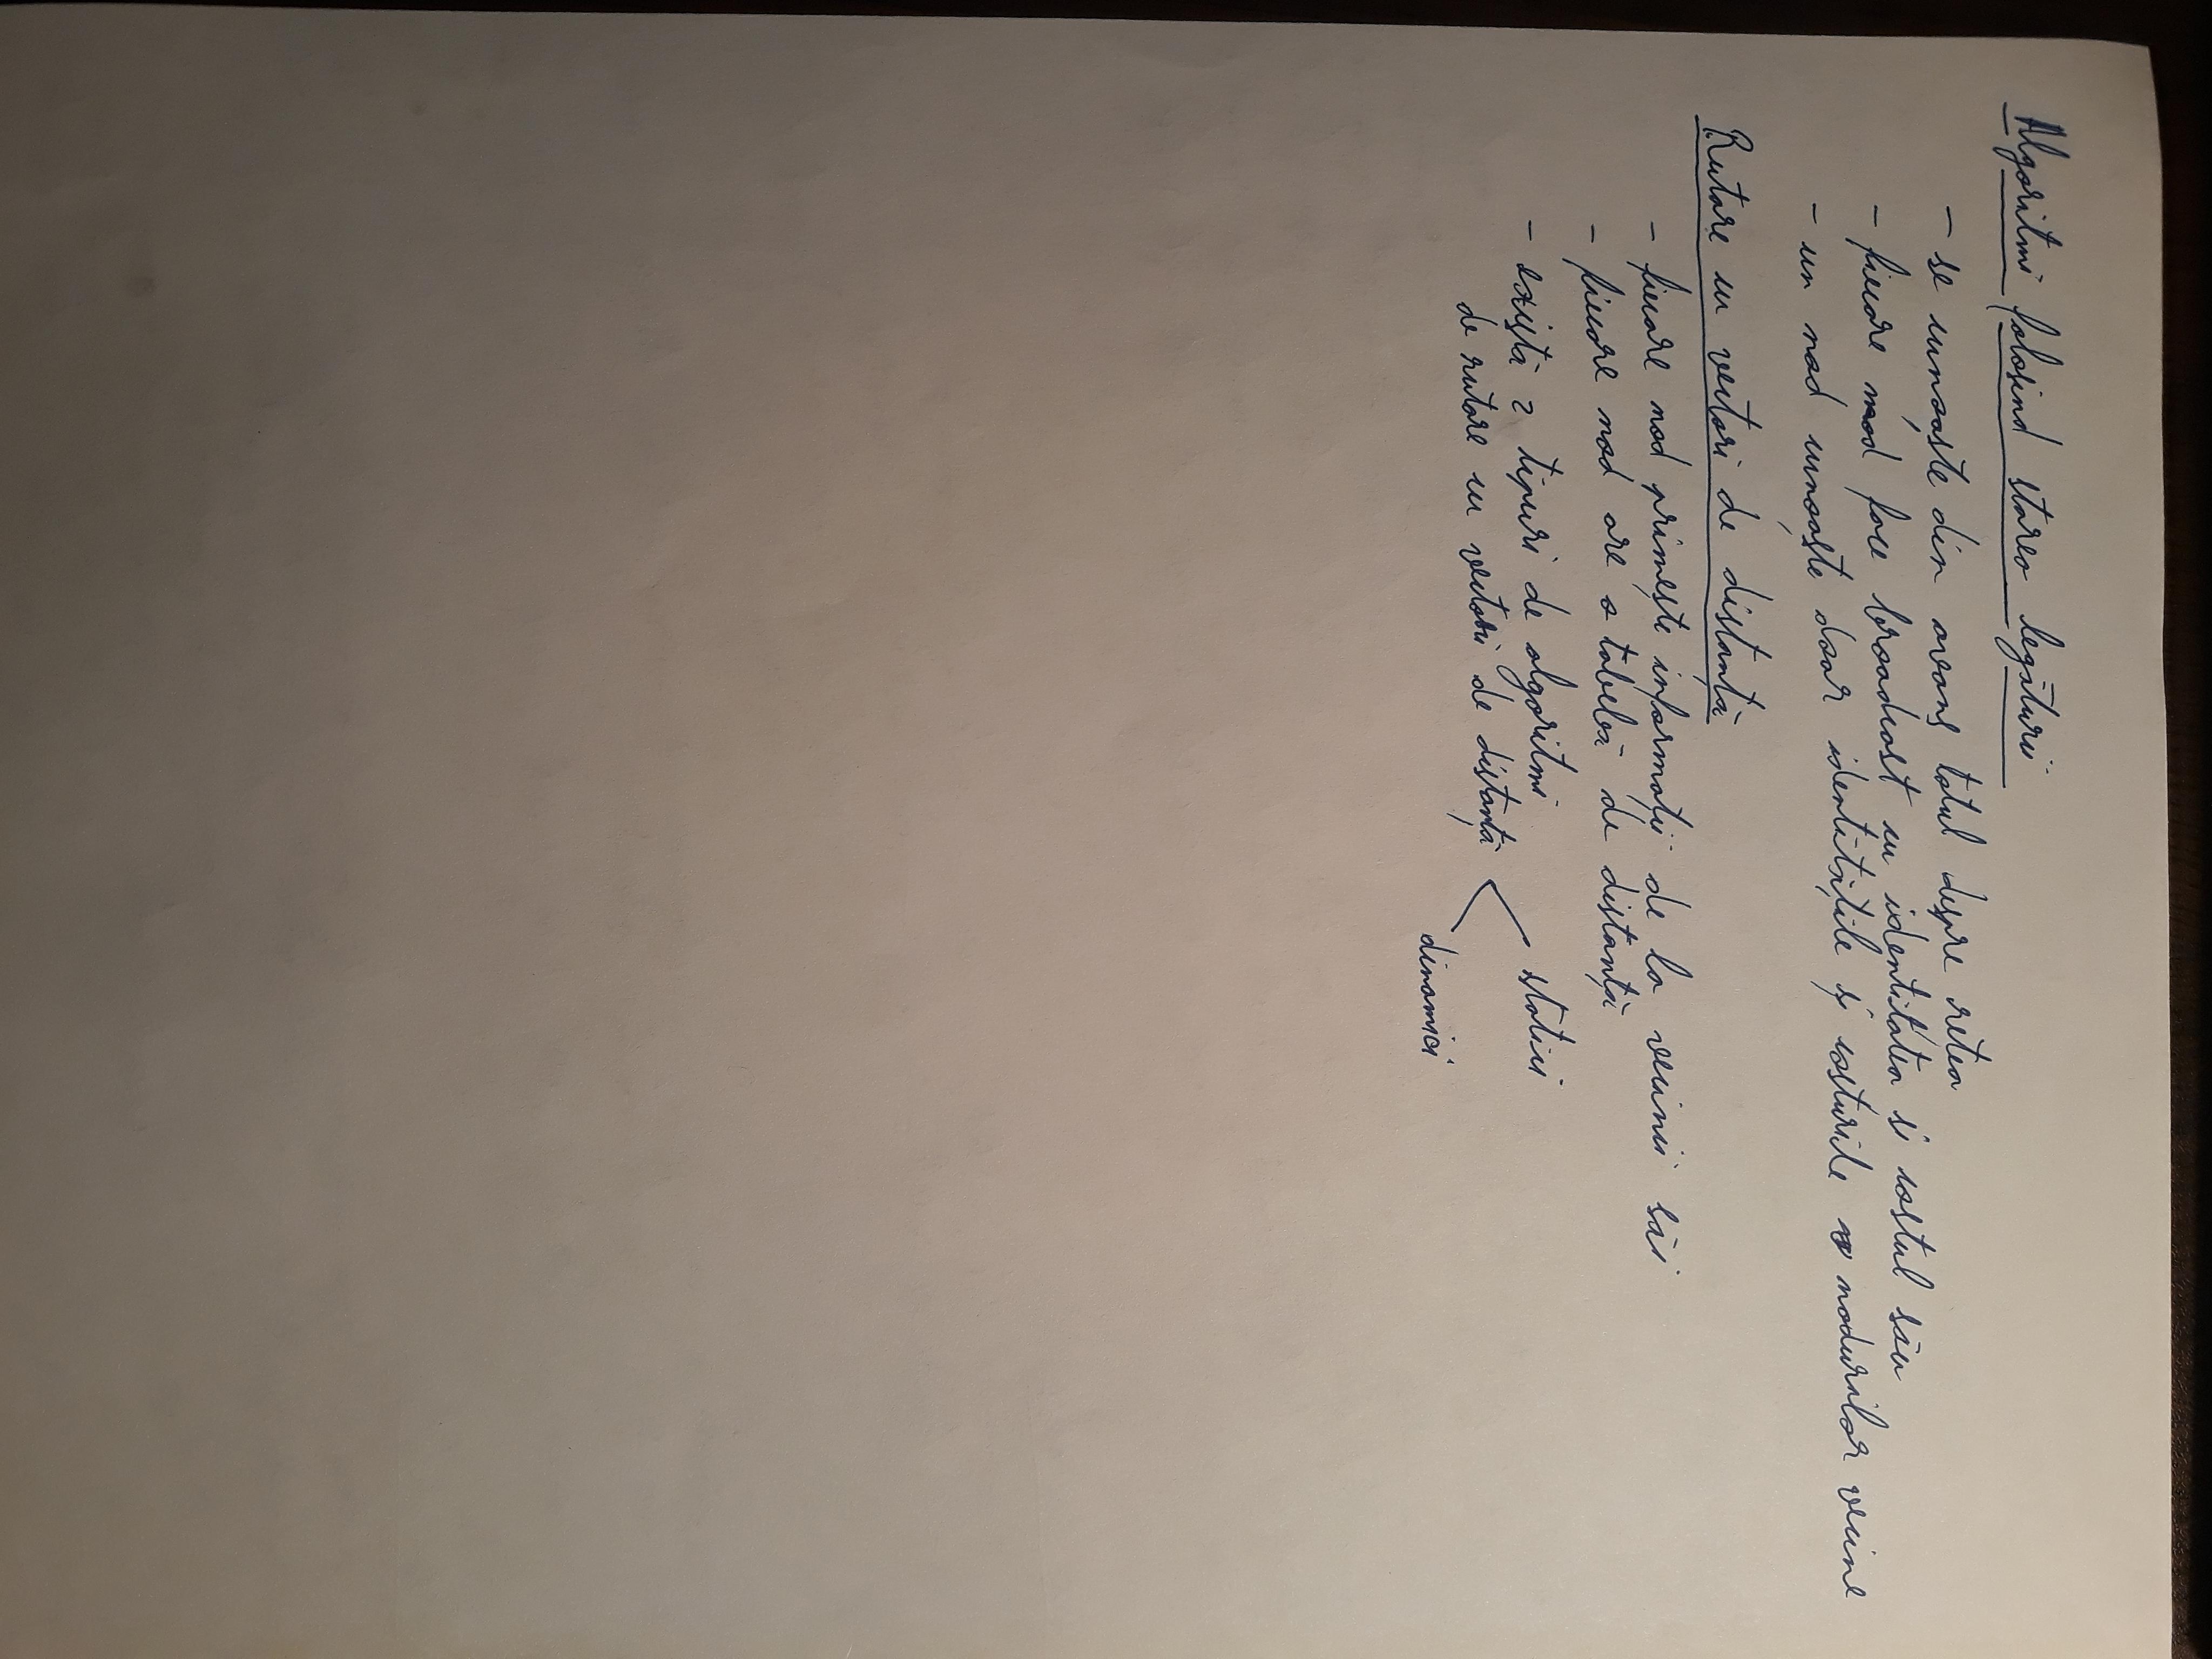 Algoritmi folosind starea legăturii
- se cunoaște din avans totul despre rețea
- fiecare nod face broadcast cu identitatea și costul său
- un nod cunoaște doar identitățile și costurile nodurilor vecine
Rutare cu vectori de distanță
- fiecare nod primește informații de la vecinii săi
- fiecare nod are o tabelă de distanță
- există 2 tipuri de algoritmi
de rutare cu vectori de distanță
statici
dinamici